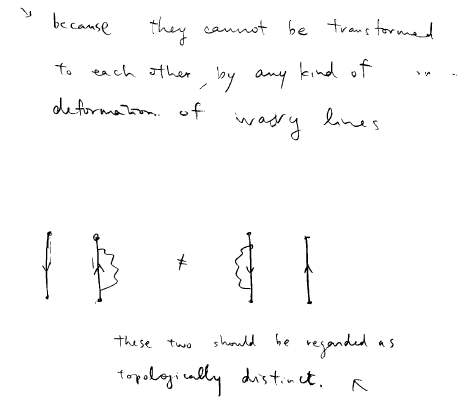 because they cannot be transformed
to each other, by any kind of
deformation of wavy lines
≠
these two should be regarded as
topologically distinct.